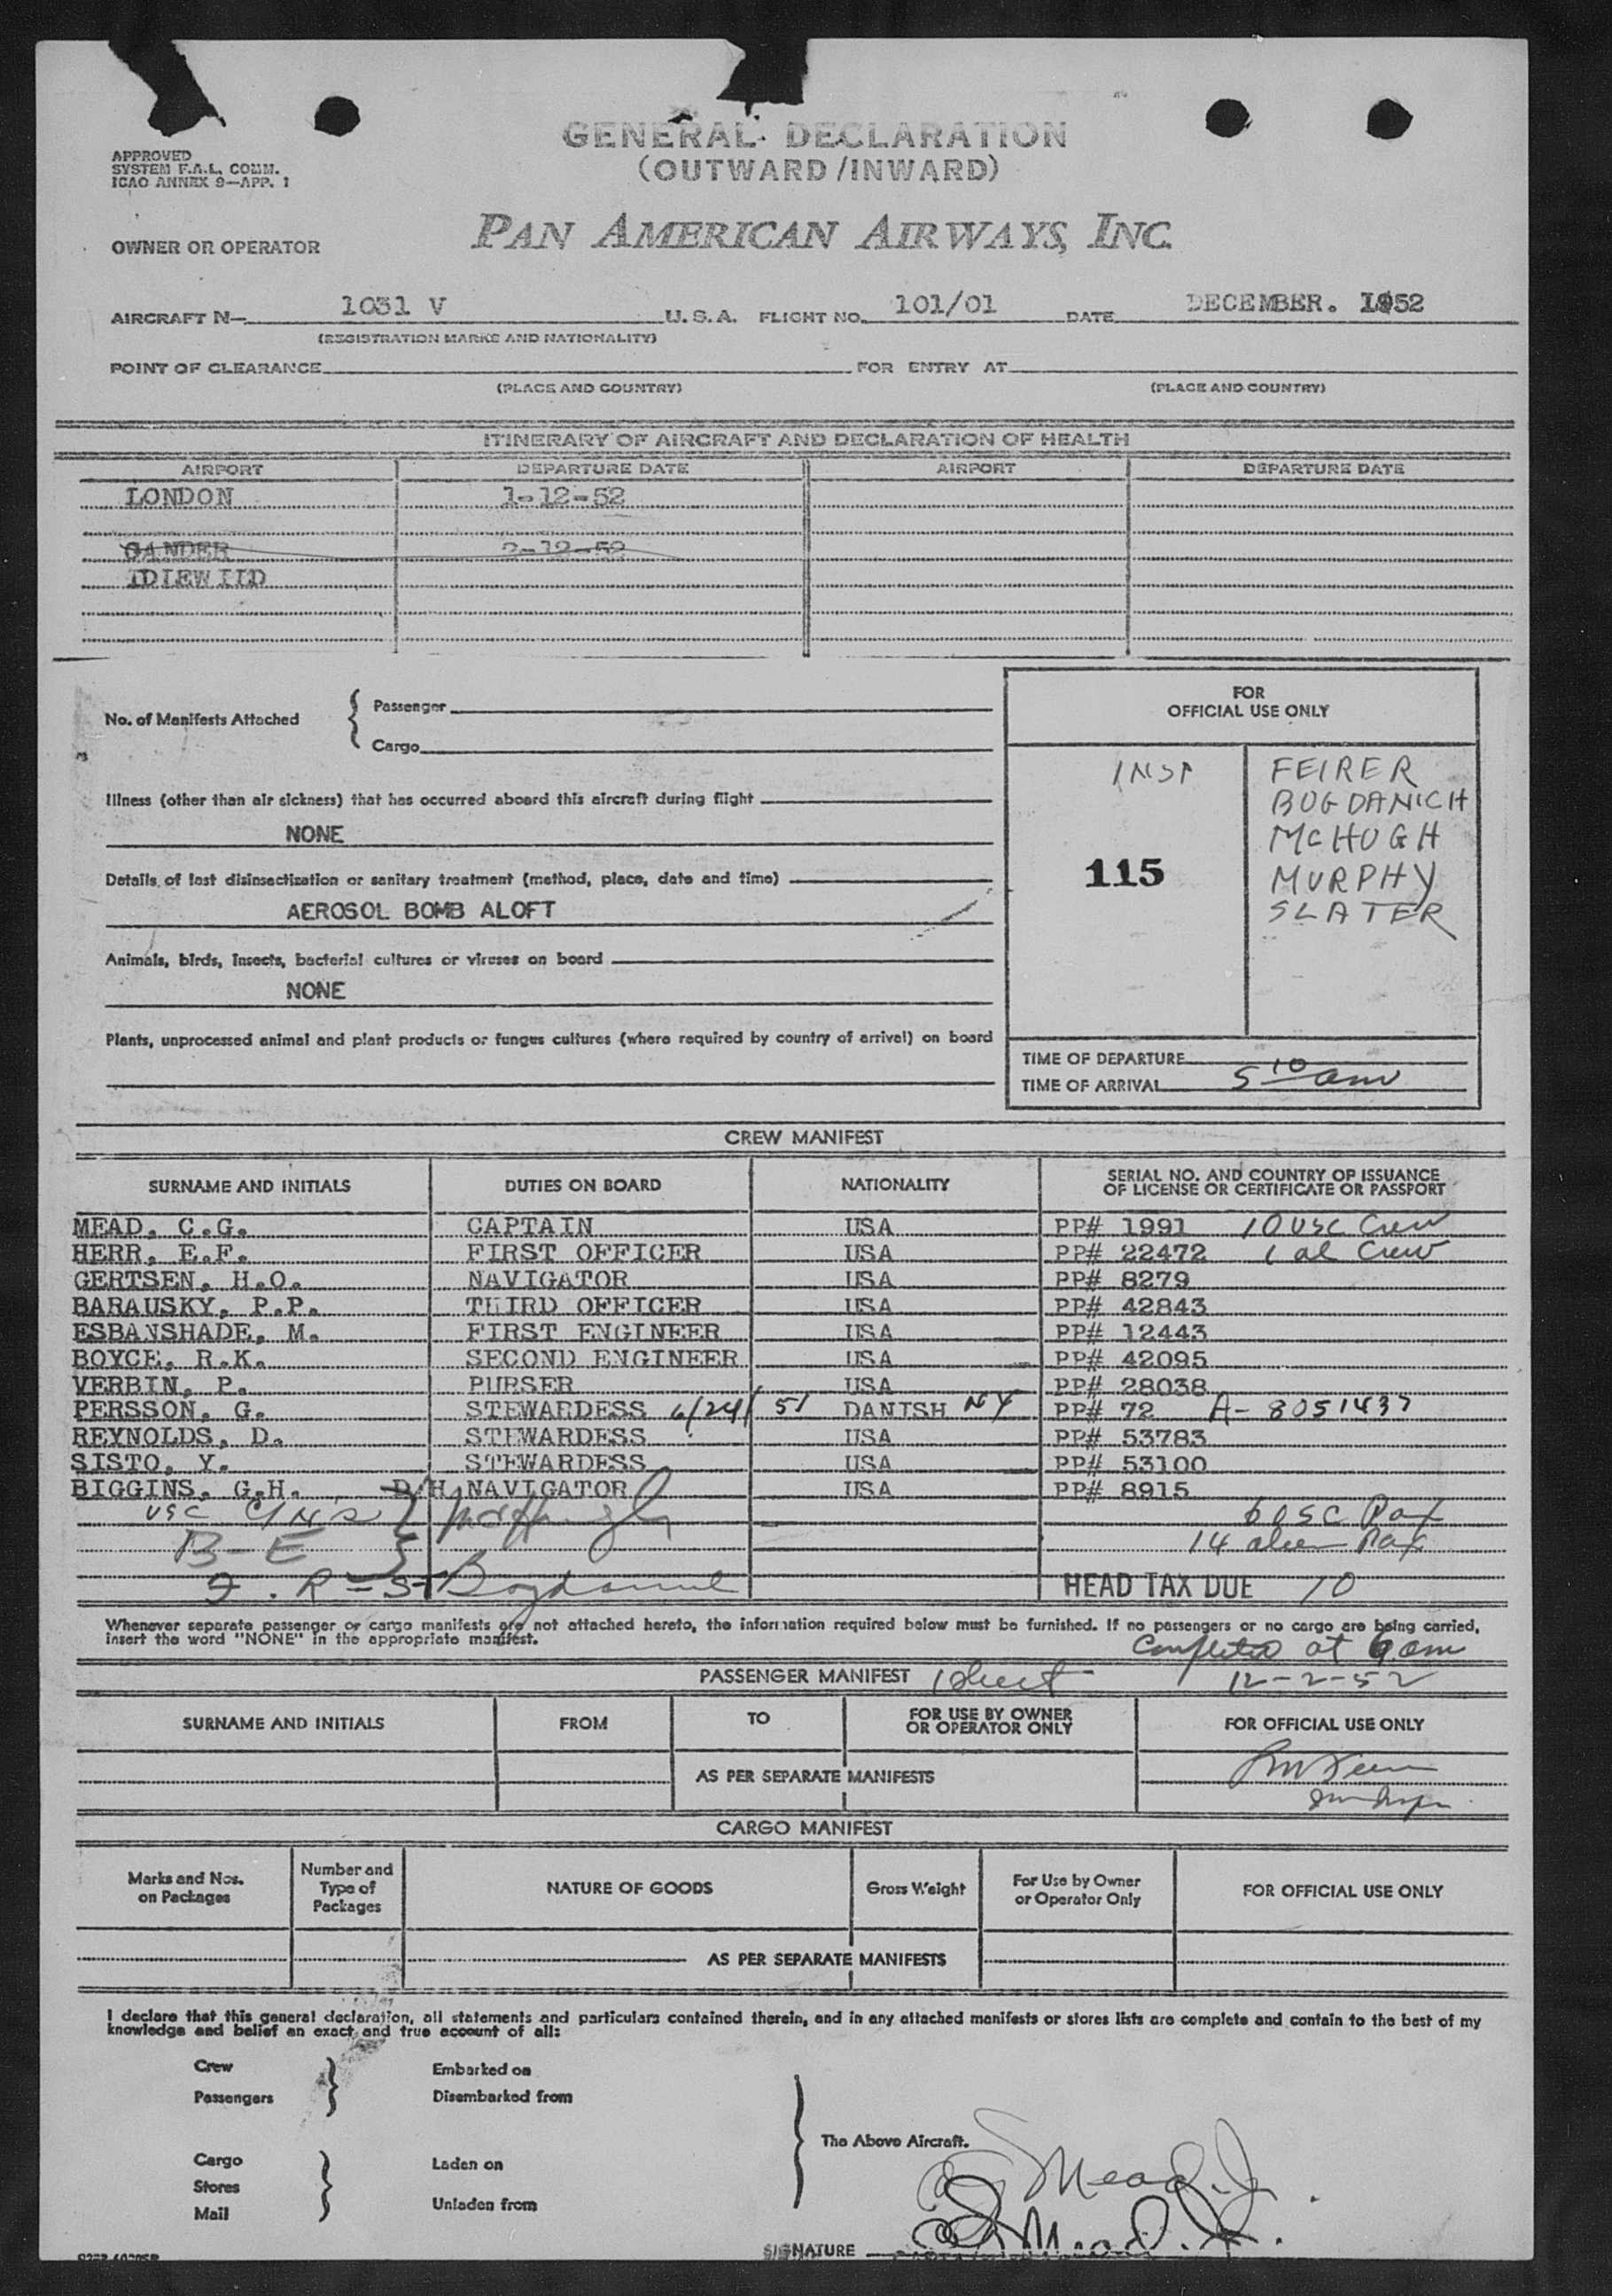 GENERAL DECLARATION
(OUTWARD/INWARD)
APPROVED
SYSTEM F.A.L. COMM.
ICAO ANNEX 9—APP. 1
PAN AMERICAN AIRWAYS, INC.
OWNER OR OPERATOR
AIRCRAFT N— 1031 V U. S. A. FLIGHT NO. 101/01 DATE DECEMBER. 1952
(REGISTRATION MARKS AND NATIONALITY)
POINT OF CLEARANCE FOR ENTRY AT
(PLACE AND COUNTRY) (PLACE AND COUNTRY)
ITINERARY OF AIRCRAFT AND DECLARATION OF HEALTH
AIRPORT DEPARTURE DATE AIRPORT DEPARTURE DATE
LONDON 1-12-52
GANDER 2-12-52
IDLEWILD
FOR
OFFICIAL USE ONLY
No. of Manifests Attached { Passenger
Cargo
INSP
FEIRER
BOGDANICH
MCHUGH
MURPHY
SLATER
115
Illness (other than air sickness) that has occurred aboard this aircraft during flight
NONE
Details of last disinsectization or sanitary treatment (method, place, date and time)
AEROSOL BOMB ALOFT
Animals, birds, insects, bacterial cultures or viruses on board
NONE
Plants, unprocessed animal and plant products or fungus cultures (where required by country of arrival) on board
TIME OF DEPARTURE
TIME OF ARRIVAL 5 10 am
CREW MANIFEST
SURNAME AND INITIALS DUTIES ON BOARD NATIONALITY SERIAL NO. AND COUNTRY OF ISSUANCE
OF LICENSE OR CERTIFICATE OR PASSPORT
MEAD, C.G. CAPTAIN USA PP# 1991 10 USC Crew
HERR, E.F. FIRST OFFICER USA PP# 22472 1 al Crew
GERTSEN, H.O. NAVIGATOR USA PP# 8279
BARAUSKY, P.P. THIRD OFFICER USA PP# 42843
ESBANSHADE, M. FIRST ENGINEER USA PP# 12443
BOYCE, R.K. SECOND ENGINEER USA PP# 42095
VERBIN, P. PURSER USA PP# 28038
PERSSON, G. STEWARDESS 6/24/51 DANISH NY PP# 72 A-8051437
REYNOLDS, D. STEWARDESS USA PP# 53783
SISTO, Y. STEWARDESS USA PP# 53100
BIGGINS, G.H. D/H NAVIGATOR USA PP# 8915
USC McHugh 6 USC Pax
B-E } 14 alien Pax
R-S Bogdanich HEAD TAX DUE 10
Whenever separate passenger or cargo manifests are not attached hereto, the information required below must be furnished. If no passengers or no cargo are being carried,
insert the word "NONE" in the appropriate manifest.
Completed at 6 am
PASSENGER MANIFEST 1 sheet 12-2-52
SURNAME AND INITIALS FROM TO FOR USE BY OWNER
OR OPERATOR ONLY FOR OFFICIAL USE ONLY
AS PER SEPARATE MANIFESTS
CARGO MANIFEST
Marks and Nos.
on Packages Number and
Type of
Packages NATURE OF GOODS Gross Weight For Use by Owner
or Operator Only FOR OFFICIAL USE ONLY
AS PER SEPARATE MANIFESTS
I declare that this general declaration, all statements and particulars contained therein, and in any attached manifests or stores lists are complete and contain to the best of my
knowledge and belief an exact and true account of all:
Crew Embarked on
Passengers Disembarked from
The Above Aircraft.
Cargo Laden on
Stores
Mail Unladen from
C G Mead, Jr.
SIGNATURE C G Mead, Jr.